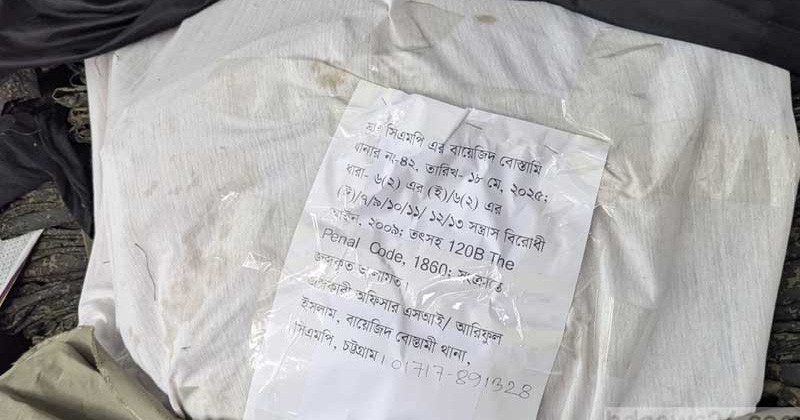 সিএমপি এর বায়েজিদ বোস্তামি
থানার নং-৪২, তারিখ- ১৮ মে, ২০২৫;
ধারা- ৬(২) এর (ই)/৬(২) এর
(ঈ)/৭/৯/১০/১১/ ১২/১৩ সন্ত্রাস বিরোধী
আইন, ২০০৯; তৎসহ 120B The
Penal Code, 1860; সংক্রান্তে
জব্দকৃত আলামত।
অফিসার এসআই/ আরিফুল
ইসলাম, বায়েজিদ বোস্তামী থানা,
সিএমপি, চট্টগ্রাম। 01717-891328